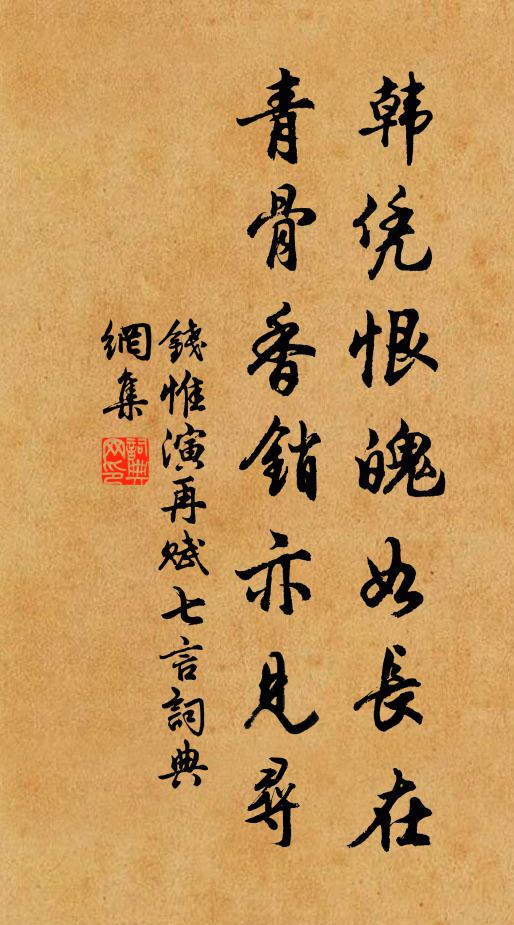 韩凭恨魄如长在
青骨香销亦见寻
钱惟演再赋七言詞典
網集
詞典网印